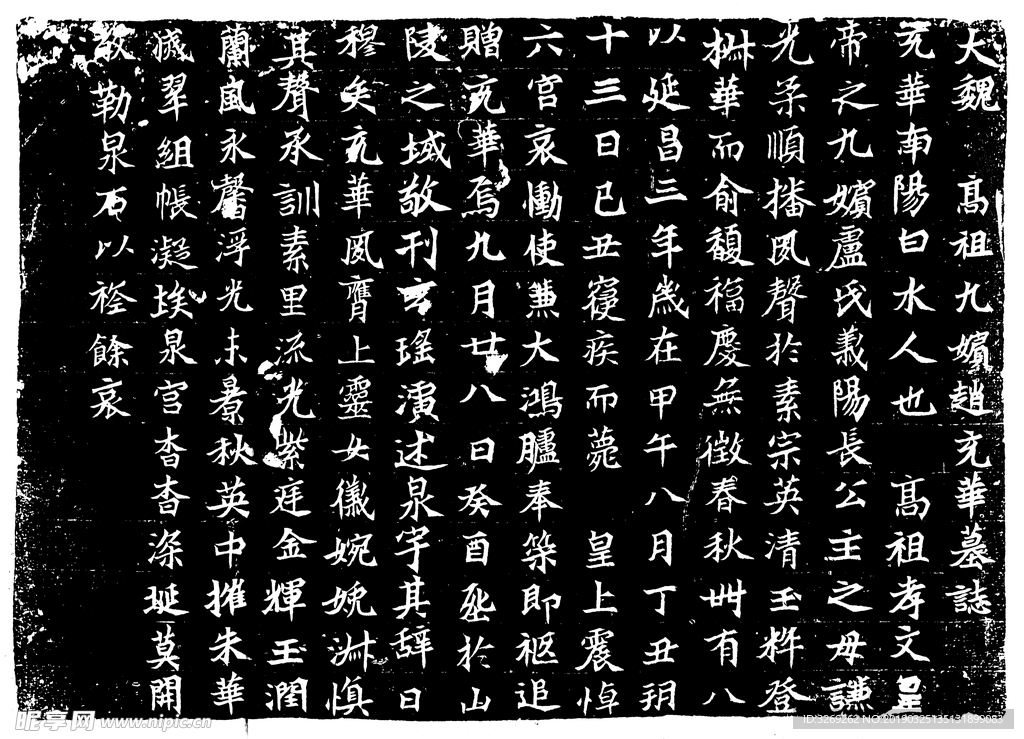 大魏 高祖九嬪趙充華墓誌
充華南陽白水人也 高祖孝文皇
帝之九嬪盧氏義陽長公主之母謙
光柔順播夙聲於素宗英清玉粹登
椒華而俞馥福慶無徵春秋卌有八
以延昌三年歲在甲午八月丁丑朔
十三日己丑寢疾而薨 皇上震悼
六官哀慟使兼大鴻臚奉策即柩追
贈充華焉九月廿八日癸酉𦵏於山
陵之域敬刊玄瑤演述泉宇其辭曰
穆矣充華夙膺上靈女徽婉娩淋慎
其聲承訓素里流光紫庭金輝玉潤
蘭風永馨浮光未景秋英中摧朱華
翠組帳凝埃泉宫杳杳深埏莫開
敬勒泉石以衉餘哀
昵享网 www.nipic.cn
ID:3269262 NO:20190325135131899083